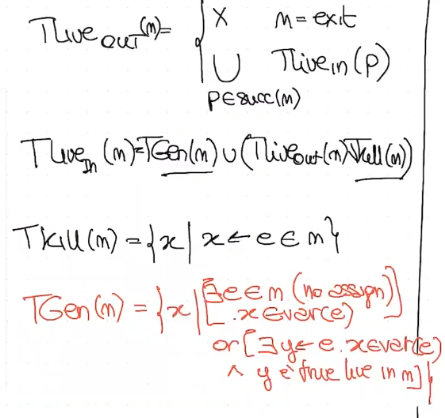 TLive out(m) = { X m = exit
⋃ TLive in (p)
p∈succ(m)
TLive In (m) = TGen(m) ∪ (TLive out(m) \ Tkill(m))
Tkill(m) = {x | x ← e ∈ m}
TGen(m) = {x | [∃e∈m (no assign)]
[. x∈var(e)
or [∃y← e. x∈var(e)
∧ y è true live in m]}